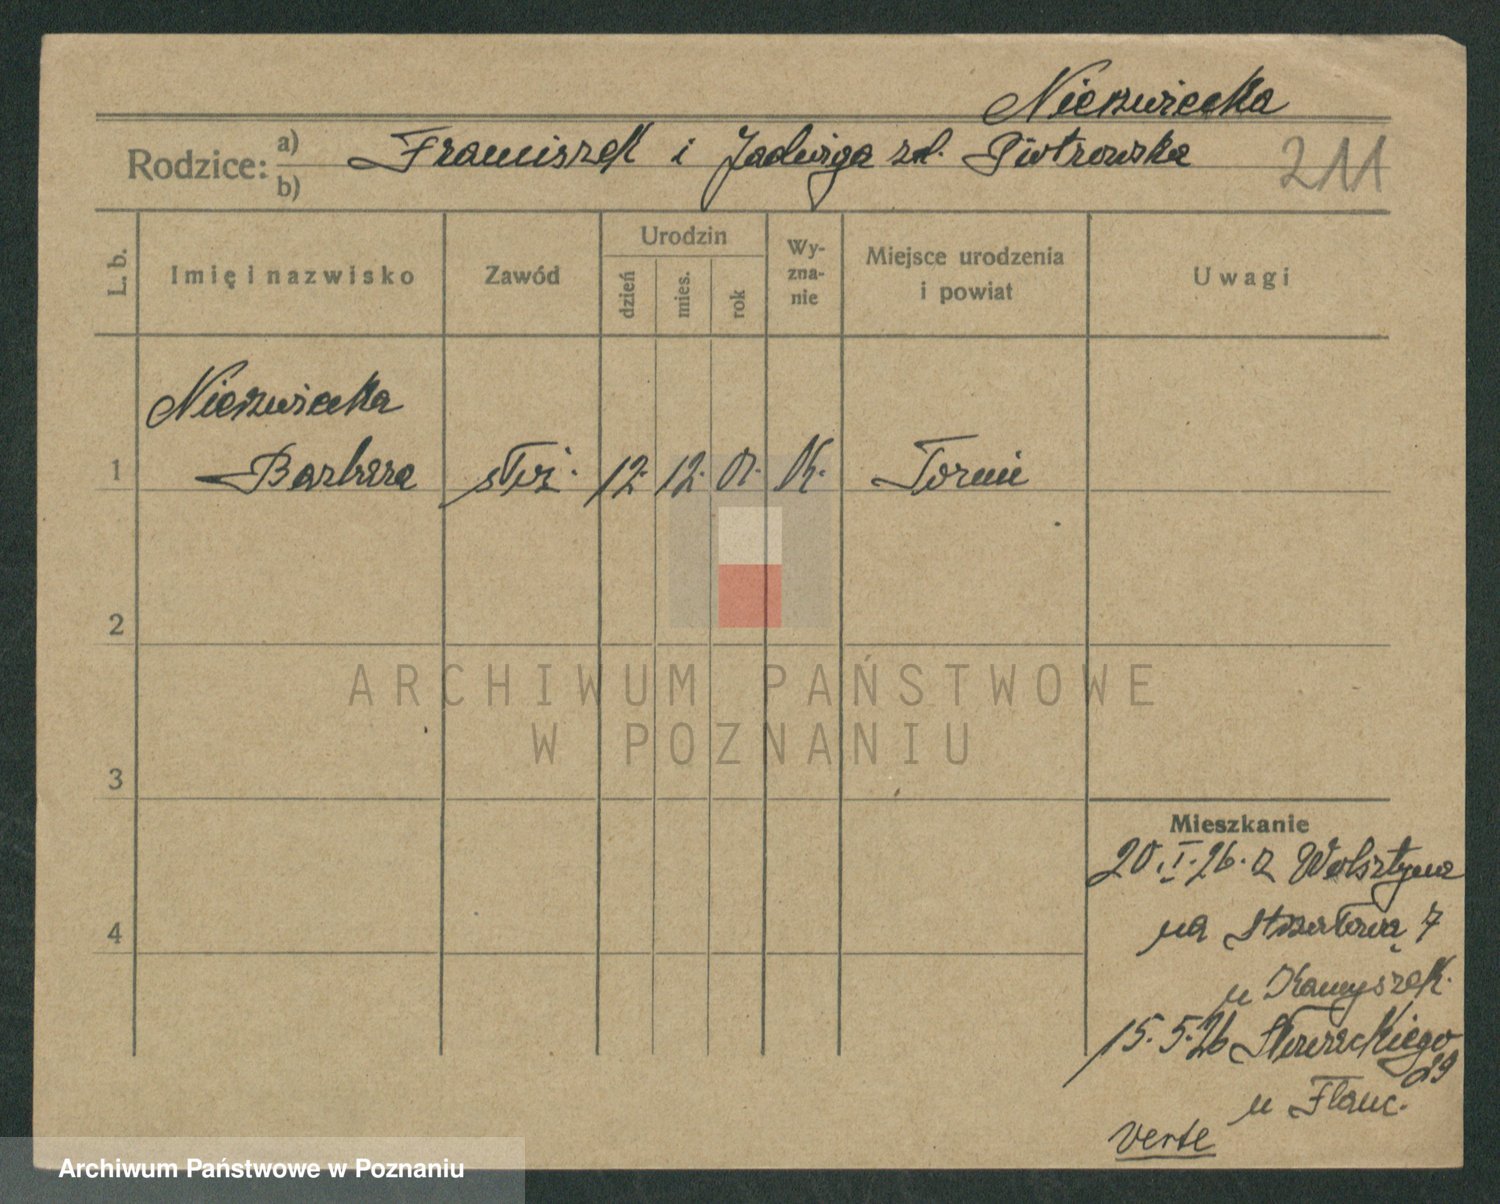 Nierzwiecka
Rodzice: a) b) Franciszek i Jadwiga zd. Piotrowska
211
L. b.
Imię i nazwisko
Zawód
Urodzin
dzień
mies.
rok
Wy-
zna-
nie
Miejsce urodzenia
i powiat
Uwagi
Nierzwiecka
1 Barbara służ. 12. 12. 01. K. Toruń
2
3
4
Mieszkanie
20.I.26. z Wolsztyna
na Strzałową 7
u Kamyszek.
15.5.26 Słowackiego
29
u Flanc.
verte
ARCHIWUM PAŃSTWOWE
W POZNANIU
Archiwum Państwowe w Poznaniu